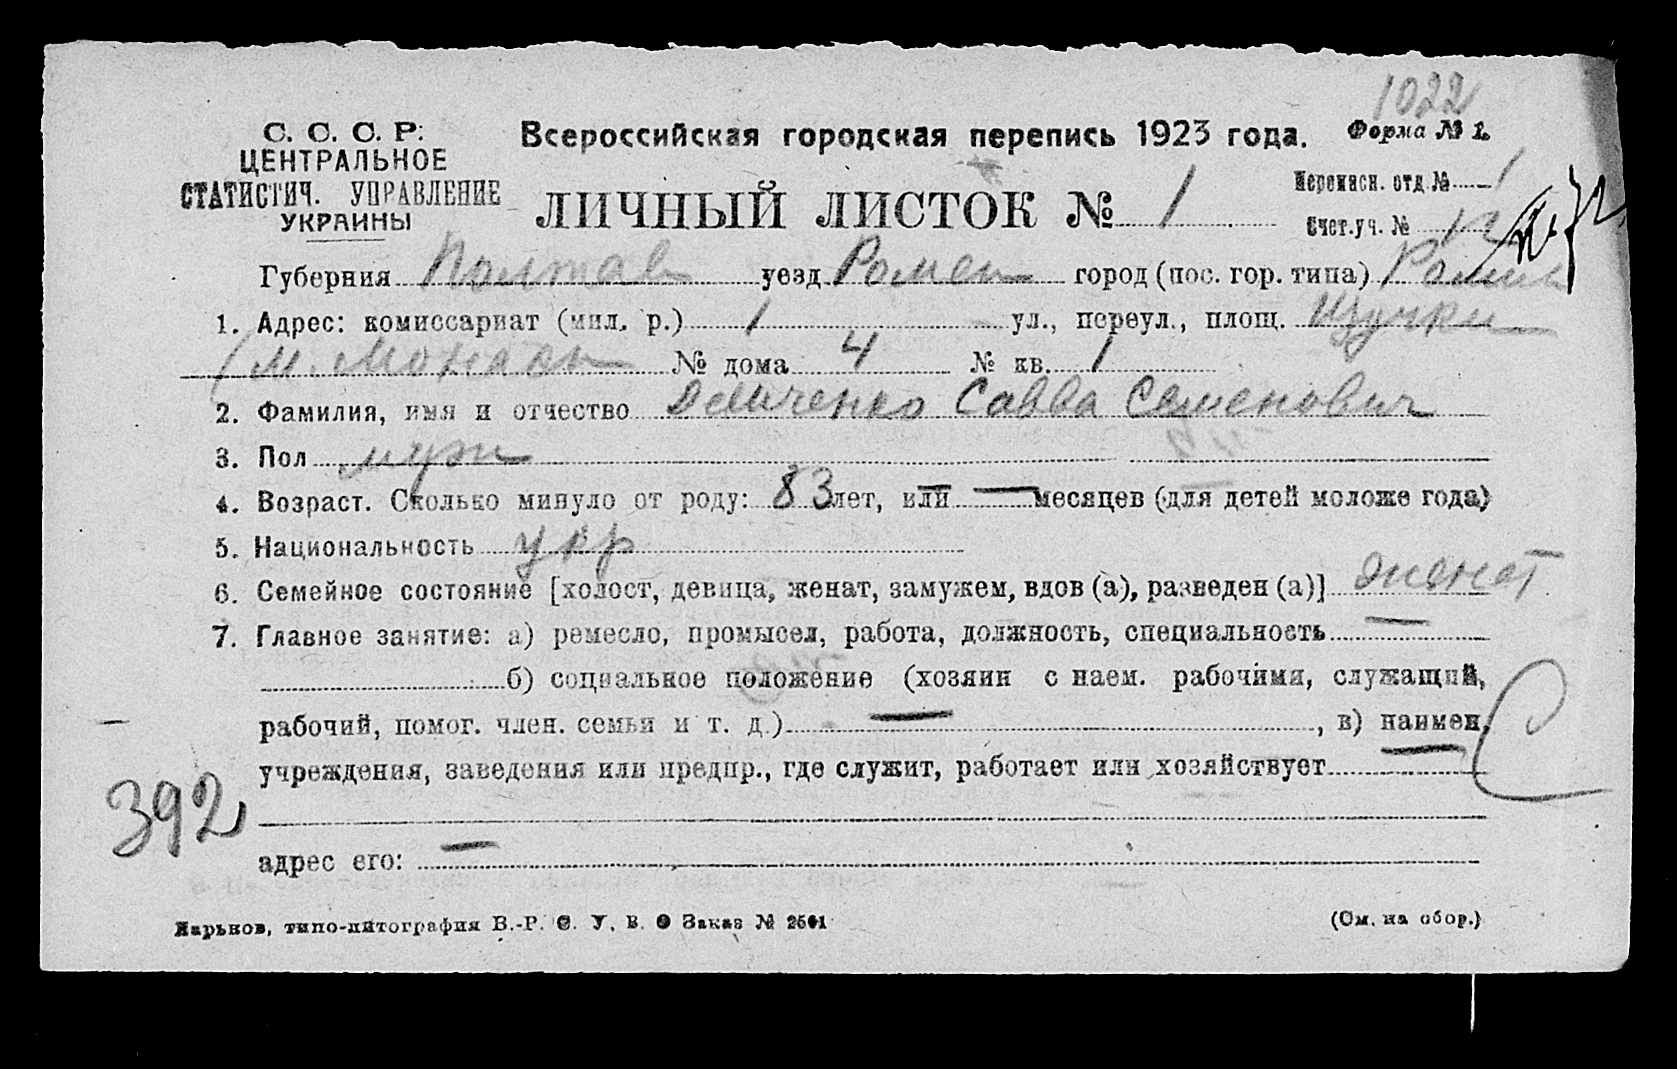 1022
С. С. С. Р.
Всероссийская городская перепись 1923 года. Форма № 1.
ЦЕНТРАЛЬНОЕ
СТАТИСТИЧ. УПРАВЛЕНИЕ
УКРАИНЫ
ЛИЧНЫЙ ЛИСТОК № 1
Переписн. отд. № 1
Счет. уч. № 12
Губерния Полтав уезд Ромен город (пос. гор. типа) Ромны
1. Адрес: комиссариат (мил. р.) 1 ул., переул., площ.
(М. № дома 4 № кв. 1
2. Фамилия, имя и отчество Демченко Савва Семенович
3. Пол муж
4. Возраст. Сколько минуло от роду: 83 лет, или — месяцев (для детей моложе года)
5. Национальность укр
6. Семейное состояние [холост, девица, женат, замужем, вдов (а), разведен (а)] женат
7. Главное занятие: а) ремесло, промысел, работа, должность, специальность —
б) социальное положение (хозяин с наем. рабочими, служащий,
рабочий, помог. член. семьи и т. д.) — , в) наимен.
учреждения, заведения или предпр., где служит, работает или хозяйствует —
392
адрес его: —
Харьков, типо-литография В.-Р. С. У. В. О Заказ № 2501
(См. на обор.)